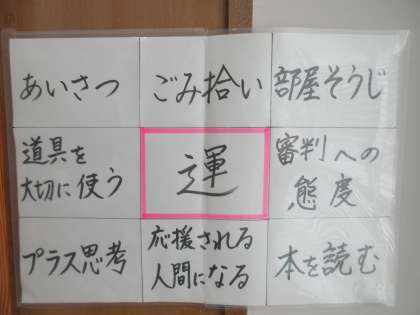 あいさつ
ごみ拾い
部屋そうじ
道具を
大切に使う
運
審判への
態度
プラス思考
応援される
人間になる
本を読む